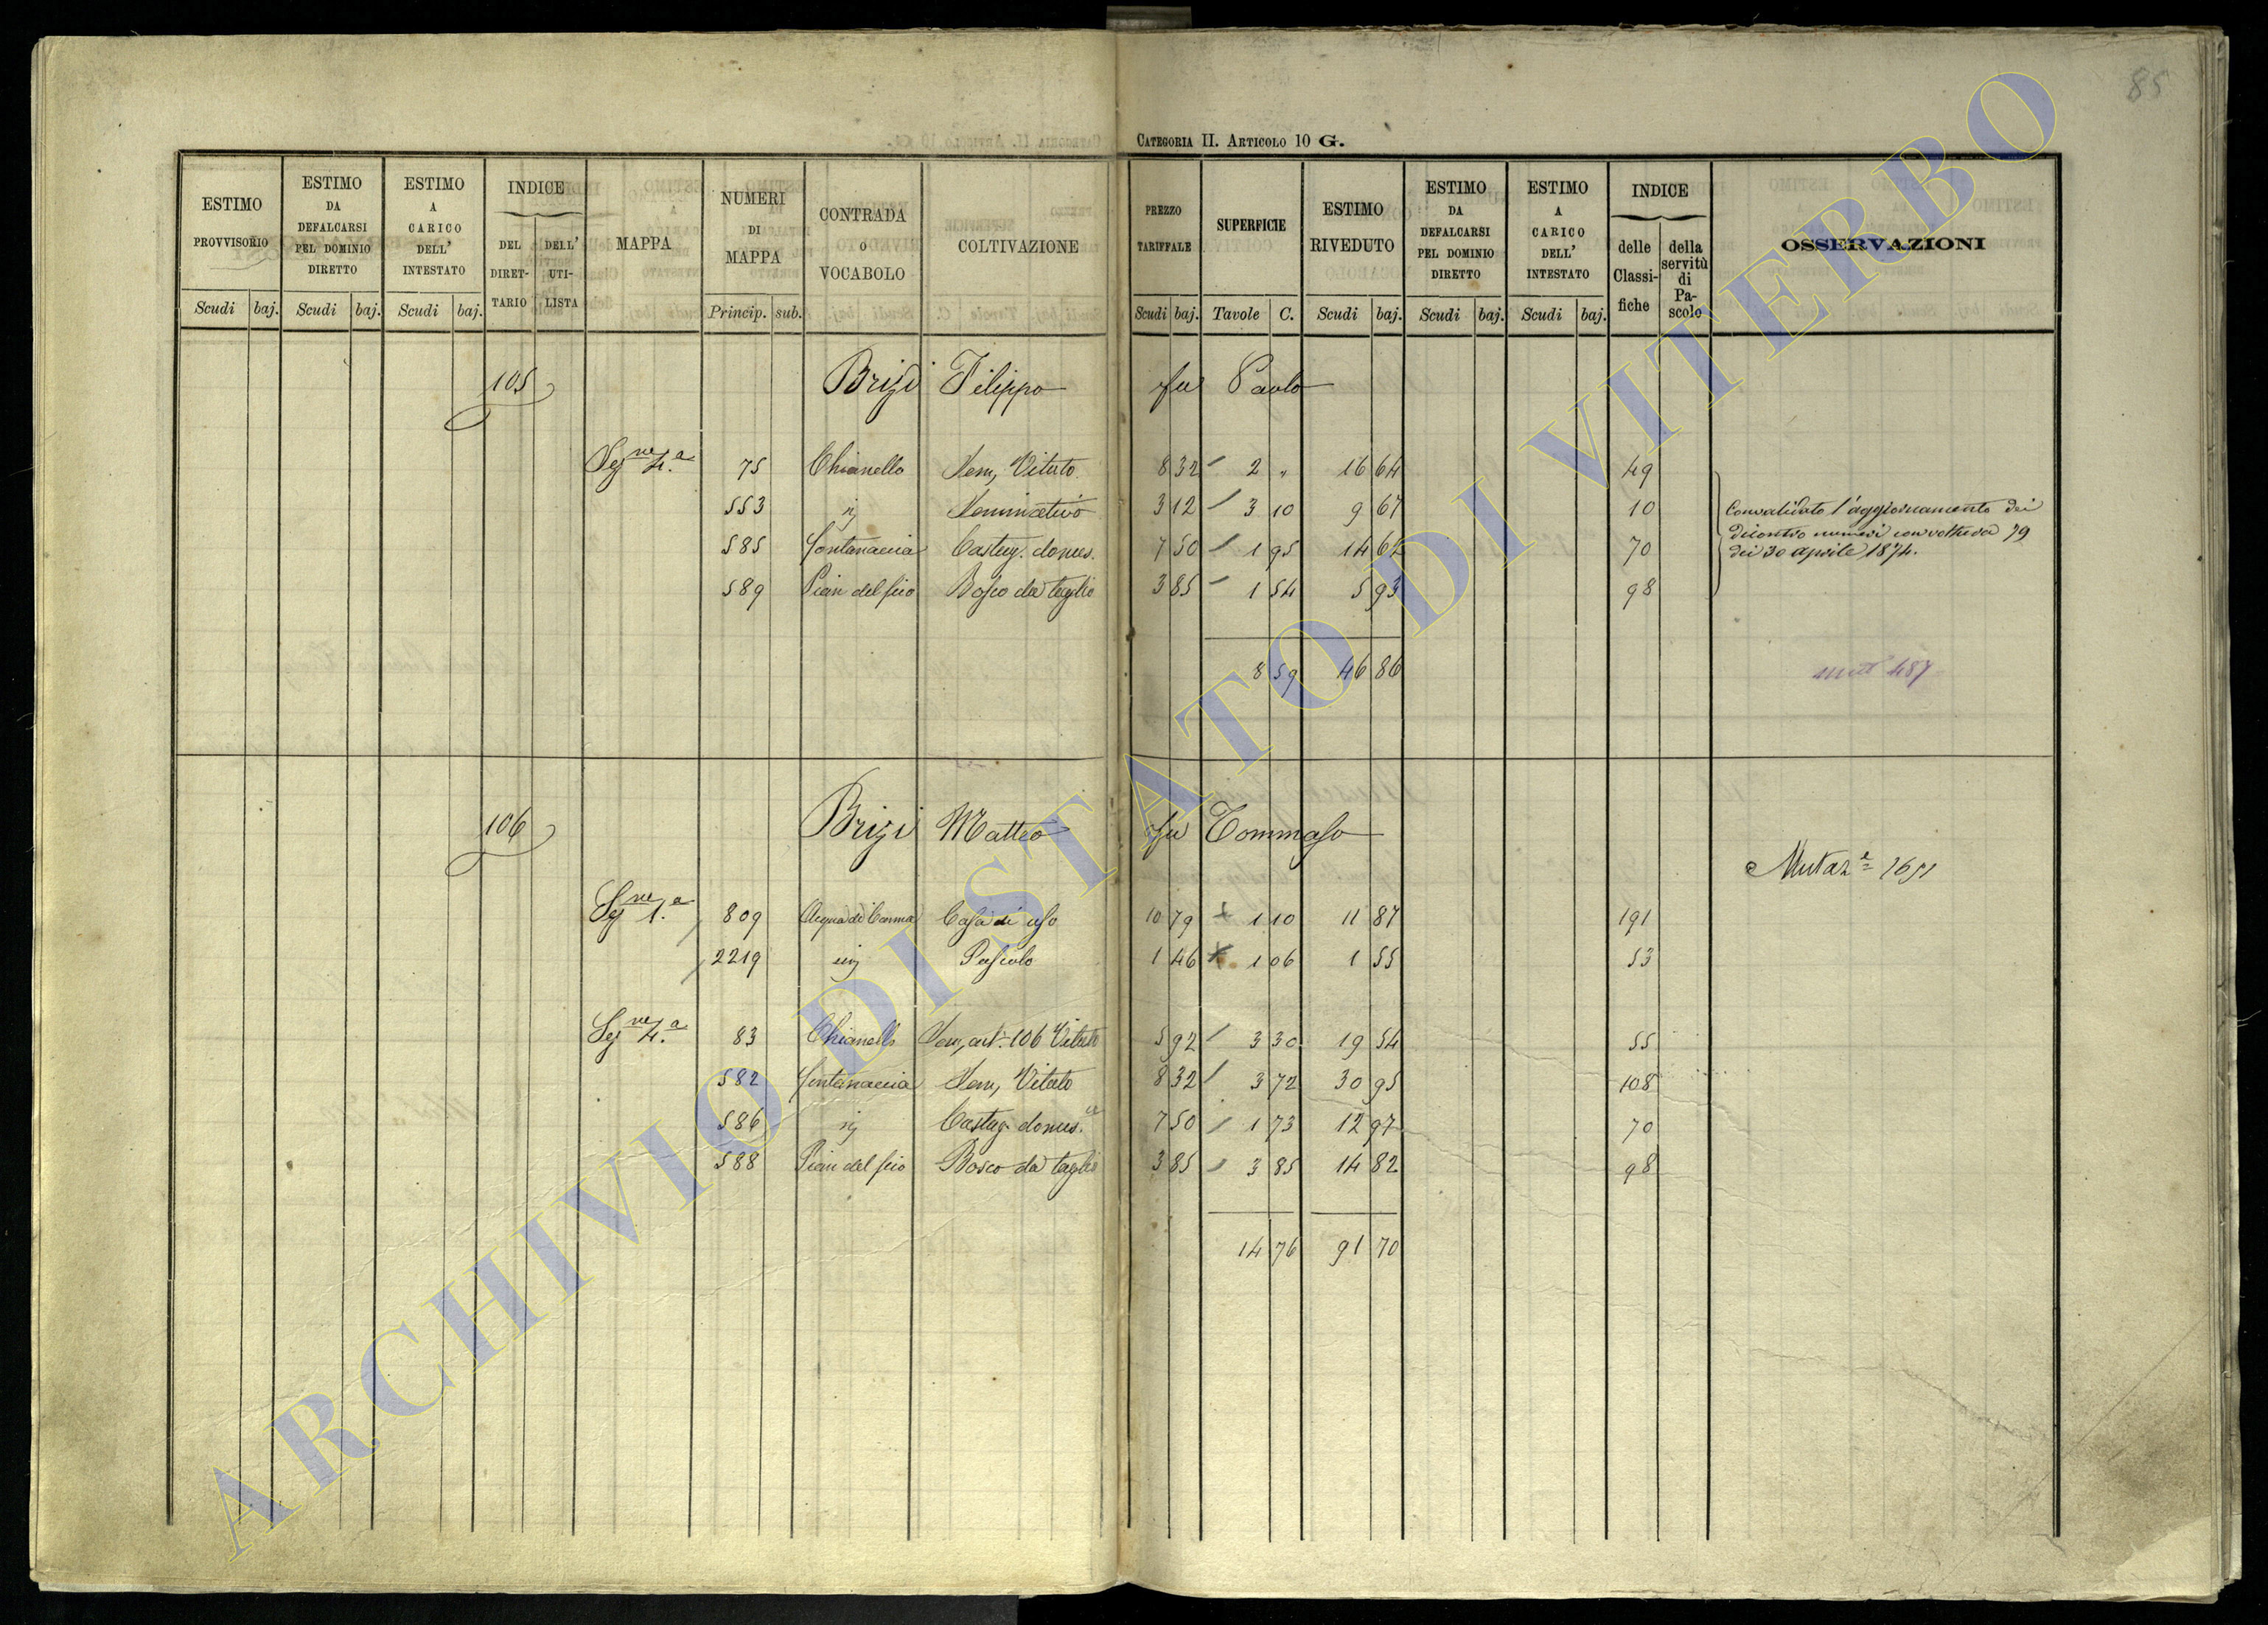 85
CATEGORIA II. ARTICOLO 10 G.
ESTIMO PROVVISORIO Scudi baj.
ESTIMO DA DEFALCARSI PEL DOMINIO DIRETTO Scudi baj.
ESTIMO A CARICO DELL' INTESTATO Scudi baj.
INDICE DEL DIRET-TARIO DELL' UTI-LISTA
MAPPA
NUMERI DI MAPPA Princip. sub.
CONTRADA O VOCABOLO
COLTIVAZIONE
PREZZO TARIFFALE Scudi baj.
SUPERFICIE Tavole C.
ESTIMO RIVEDUTO Scudi baj.
ESTIMO DA DEFALCARSI PEL DOMINIO DIRETTO Scudi baj.
ESTIMO A CARICO DELL' INTESTATO Scudi baj.
INDICE delle Classi-fiche della servitù di Pa-scolo
OSSERVAZIONI
105 Brizi Filippo fu Paolo
Sez.ne 4.a 75 Chianello Sem, Vitato 8 32 2 " 16 64 49
553 ivi Seminativo 3 12 3 10 9 67 10
585 Fontanaccia Castag. domes. 7 50 1 95 14 62 70
589 Pian del fico Bosco da taglio 3 85 1 54 5 93 98
Convalidato l'aggiornamento dei
dicontro numeri con voltura 79
dei 30 aprile 1874.
8 59 46 86
mut 487
106 Brizi Matteo fu Tommaso
Mutaz.e 1651
Sez.ne 1.a 809 Acqua di Canna Casa di uso 10 79 1 10 11 87 191
2219 ivi Pascolo 1 46 1 06 1 55 53
Sez.ne 4.a 83 Chianello Sem, art. 106 Vitato 5 92 3 30 19 54 55
582 Fontanaccia Sem, Vitato 8 32 3 72 30 95 108
586 ivi Castag. domes.ca 7 50 1 73 12 97 70
588 Pian del fico Bosco da taglio 3 85 3 85 14 82 98
14 76 91 70
ARCHIVIO DI STATO DI VITERBO